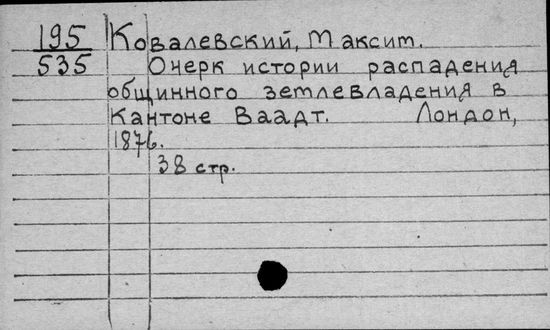 195 Ковалевский, Максим.
535 Очерк истории распадения
общинного землевладения в
Кантоне Ваадт. Лондон,
1876.
38 стр.